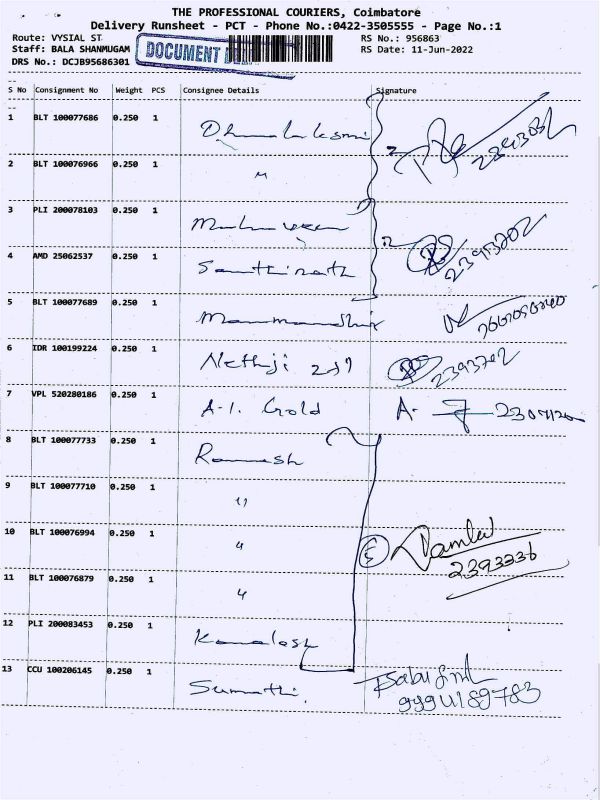 THE PROFESSIONAL COURIERS, Coimbatore
Delivery Runsheet - PCT - Phone No.:0422-3505555 - Page No.:1
Route: VYSIAL ST RS No.: 956863
Staff: BALA SHANMUGAM DOCUMENT RS Date: 11-Jun-2022
DRS No.: DCJB95686301
S No Consignment No Weight PCS Consignee Details Signature
1 BLT 100077686 0.250 1
2 BLT 100076966 0.250 1 〃
3 PLI 200078103 0.250 1
4 AMD 25062537 0.250 1 Santhinath 2393202
5 BLT 100077689 0.250 1
6 IDR 100199224 0.250 1 Nethji 2393202
7 VPL 520280186 0.250 1 A-1. Gold A-
8 BLT 100077733 0.250 1 Ramesh
9 BLT 100077710 0.250 1 〃
10 BLT 100076994 0.250 1 〃 2393336
11 BLT 100076879 0.250 1 〃
12 PLI 200083453 0.250 1
13 CCU 100206145 0.250 1 Sumathi.